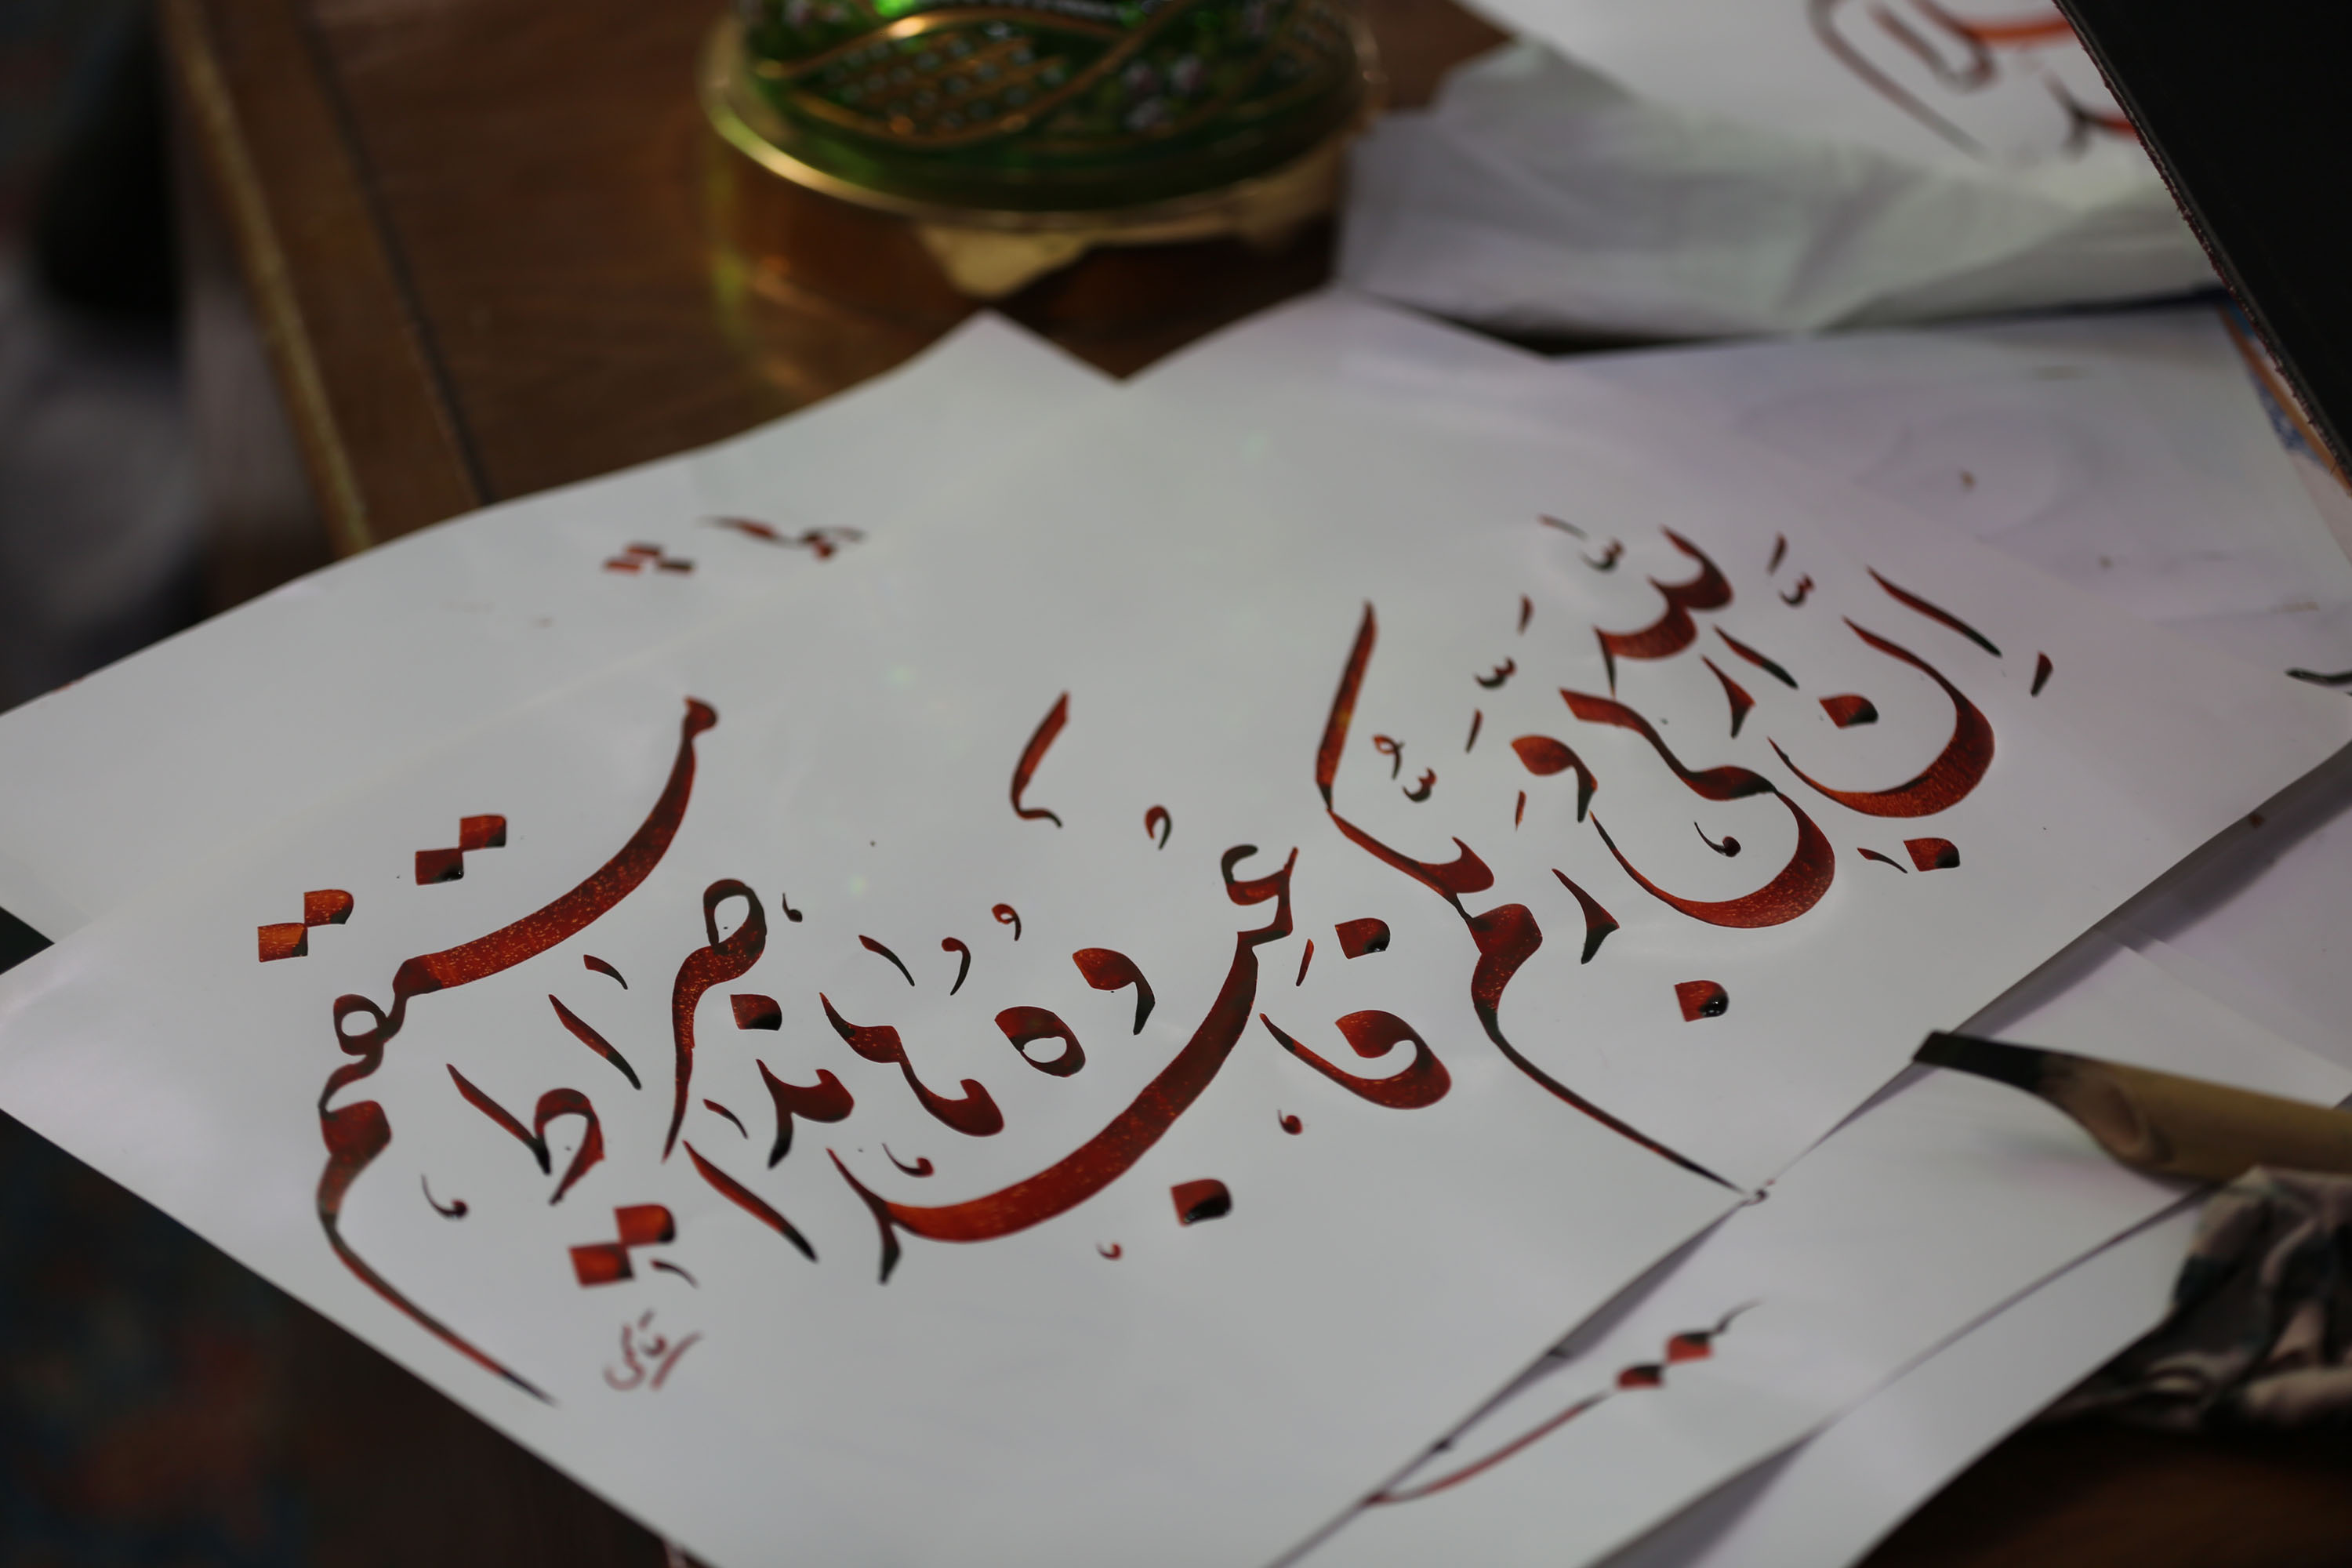 إِنَّ اللَّهَ رَبِّي وَرَبُّكُمْ فَاعْبُدُوهُ هَذَا صِرَاطٌ مُسْتَقِيمٌ